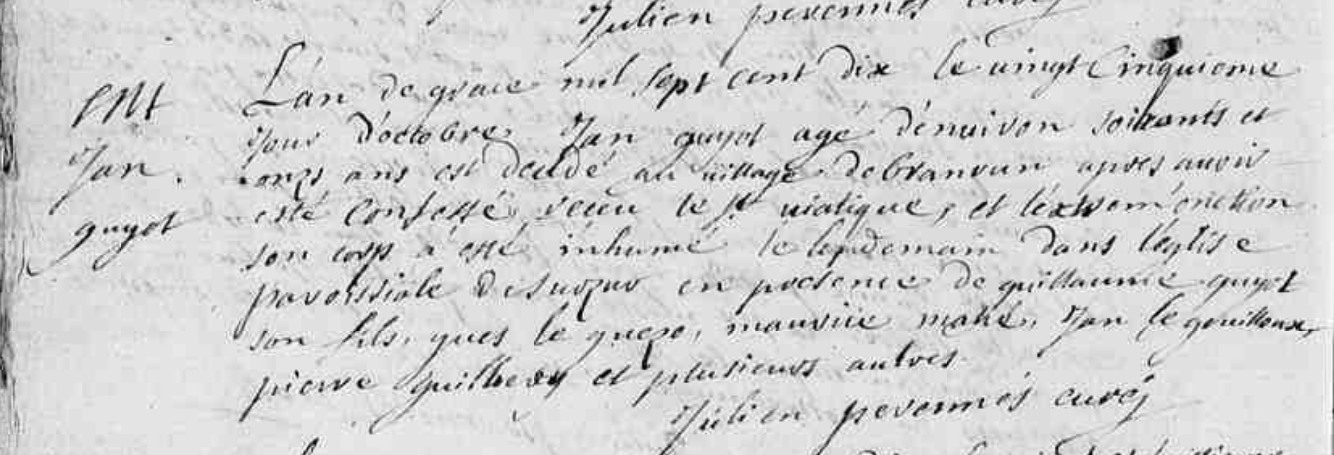 Julien perennes curé
L'an de grace mil sept cent dix le vingt Cinquieme
EnT
Jan
guyot
Jour d'octobre Jan guyot agé d'enuiron soixante et
onze ans est decedé au village apres auoir
esté Confessé receu le St uiatique, et l'extrem onction
son corps a esté inhumé le lendemain dans l'eglise
paroissiale en presence de guillaume guyot
son fils, yues le guezo, maurice mahé, Jan le gouilloux,
pierre guillerm et plusieurs autres
Julien perennés curé